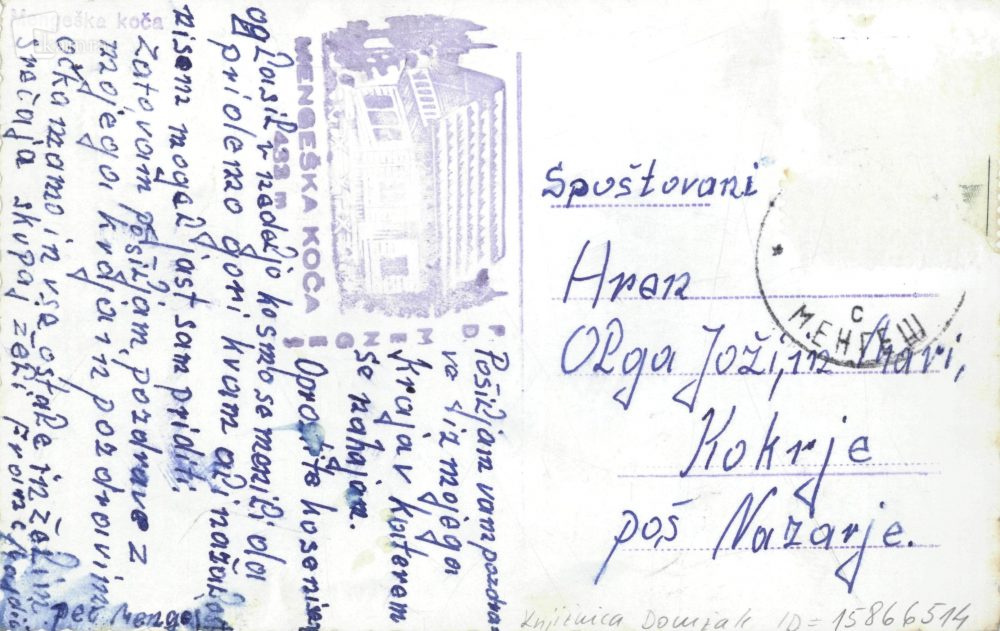 Mengeška koča
MENGEŠKA KOČA
433 m
P.D. MENGEŠ
Pošiljam vam pozdra=
ve iz mojega
kraja v katerem
se nahajam.
Oprostite ko se nisem
oglasil v nadeljo ko smo se menili da
pridemo goni k vam ali nažalo
nisem mogel jast sam pridti.
Zato vam pošiljam, pozdrave z
mojega kraja in pozdravim
očka mamo in vse ostale in želim
srečnja skupaj želi Franc
peč Mengeš
Spoštovani
Hren
Olga Joži, in Mari,
Kokrje
poš Nazarje.
С
МЕНГЕШ
Knjižnica Domžale ID=15866514